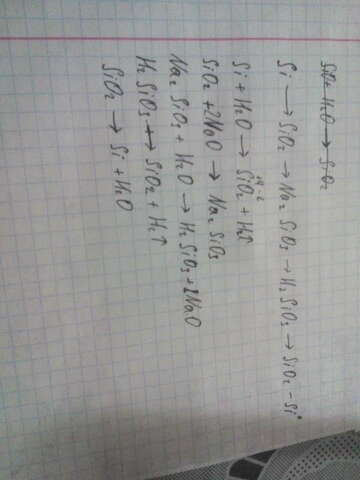 SiO₂ + H₂O → SiO₂
Si → SiO₂ → Na₂SiO₃ → H₂SiO₃ → SiO₂ - Si
Si + H₂O → SiO₂ + H₂↑
SiO₂ + 2NaO → Na₂SiO₃
Na₂SiO₃ + H₂O → H₂SiO₃ + 2NaO
H₂SiO₃ → SiO₂ + H₂↑
SiO₂ → Si + H₂O